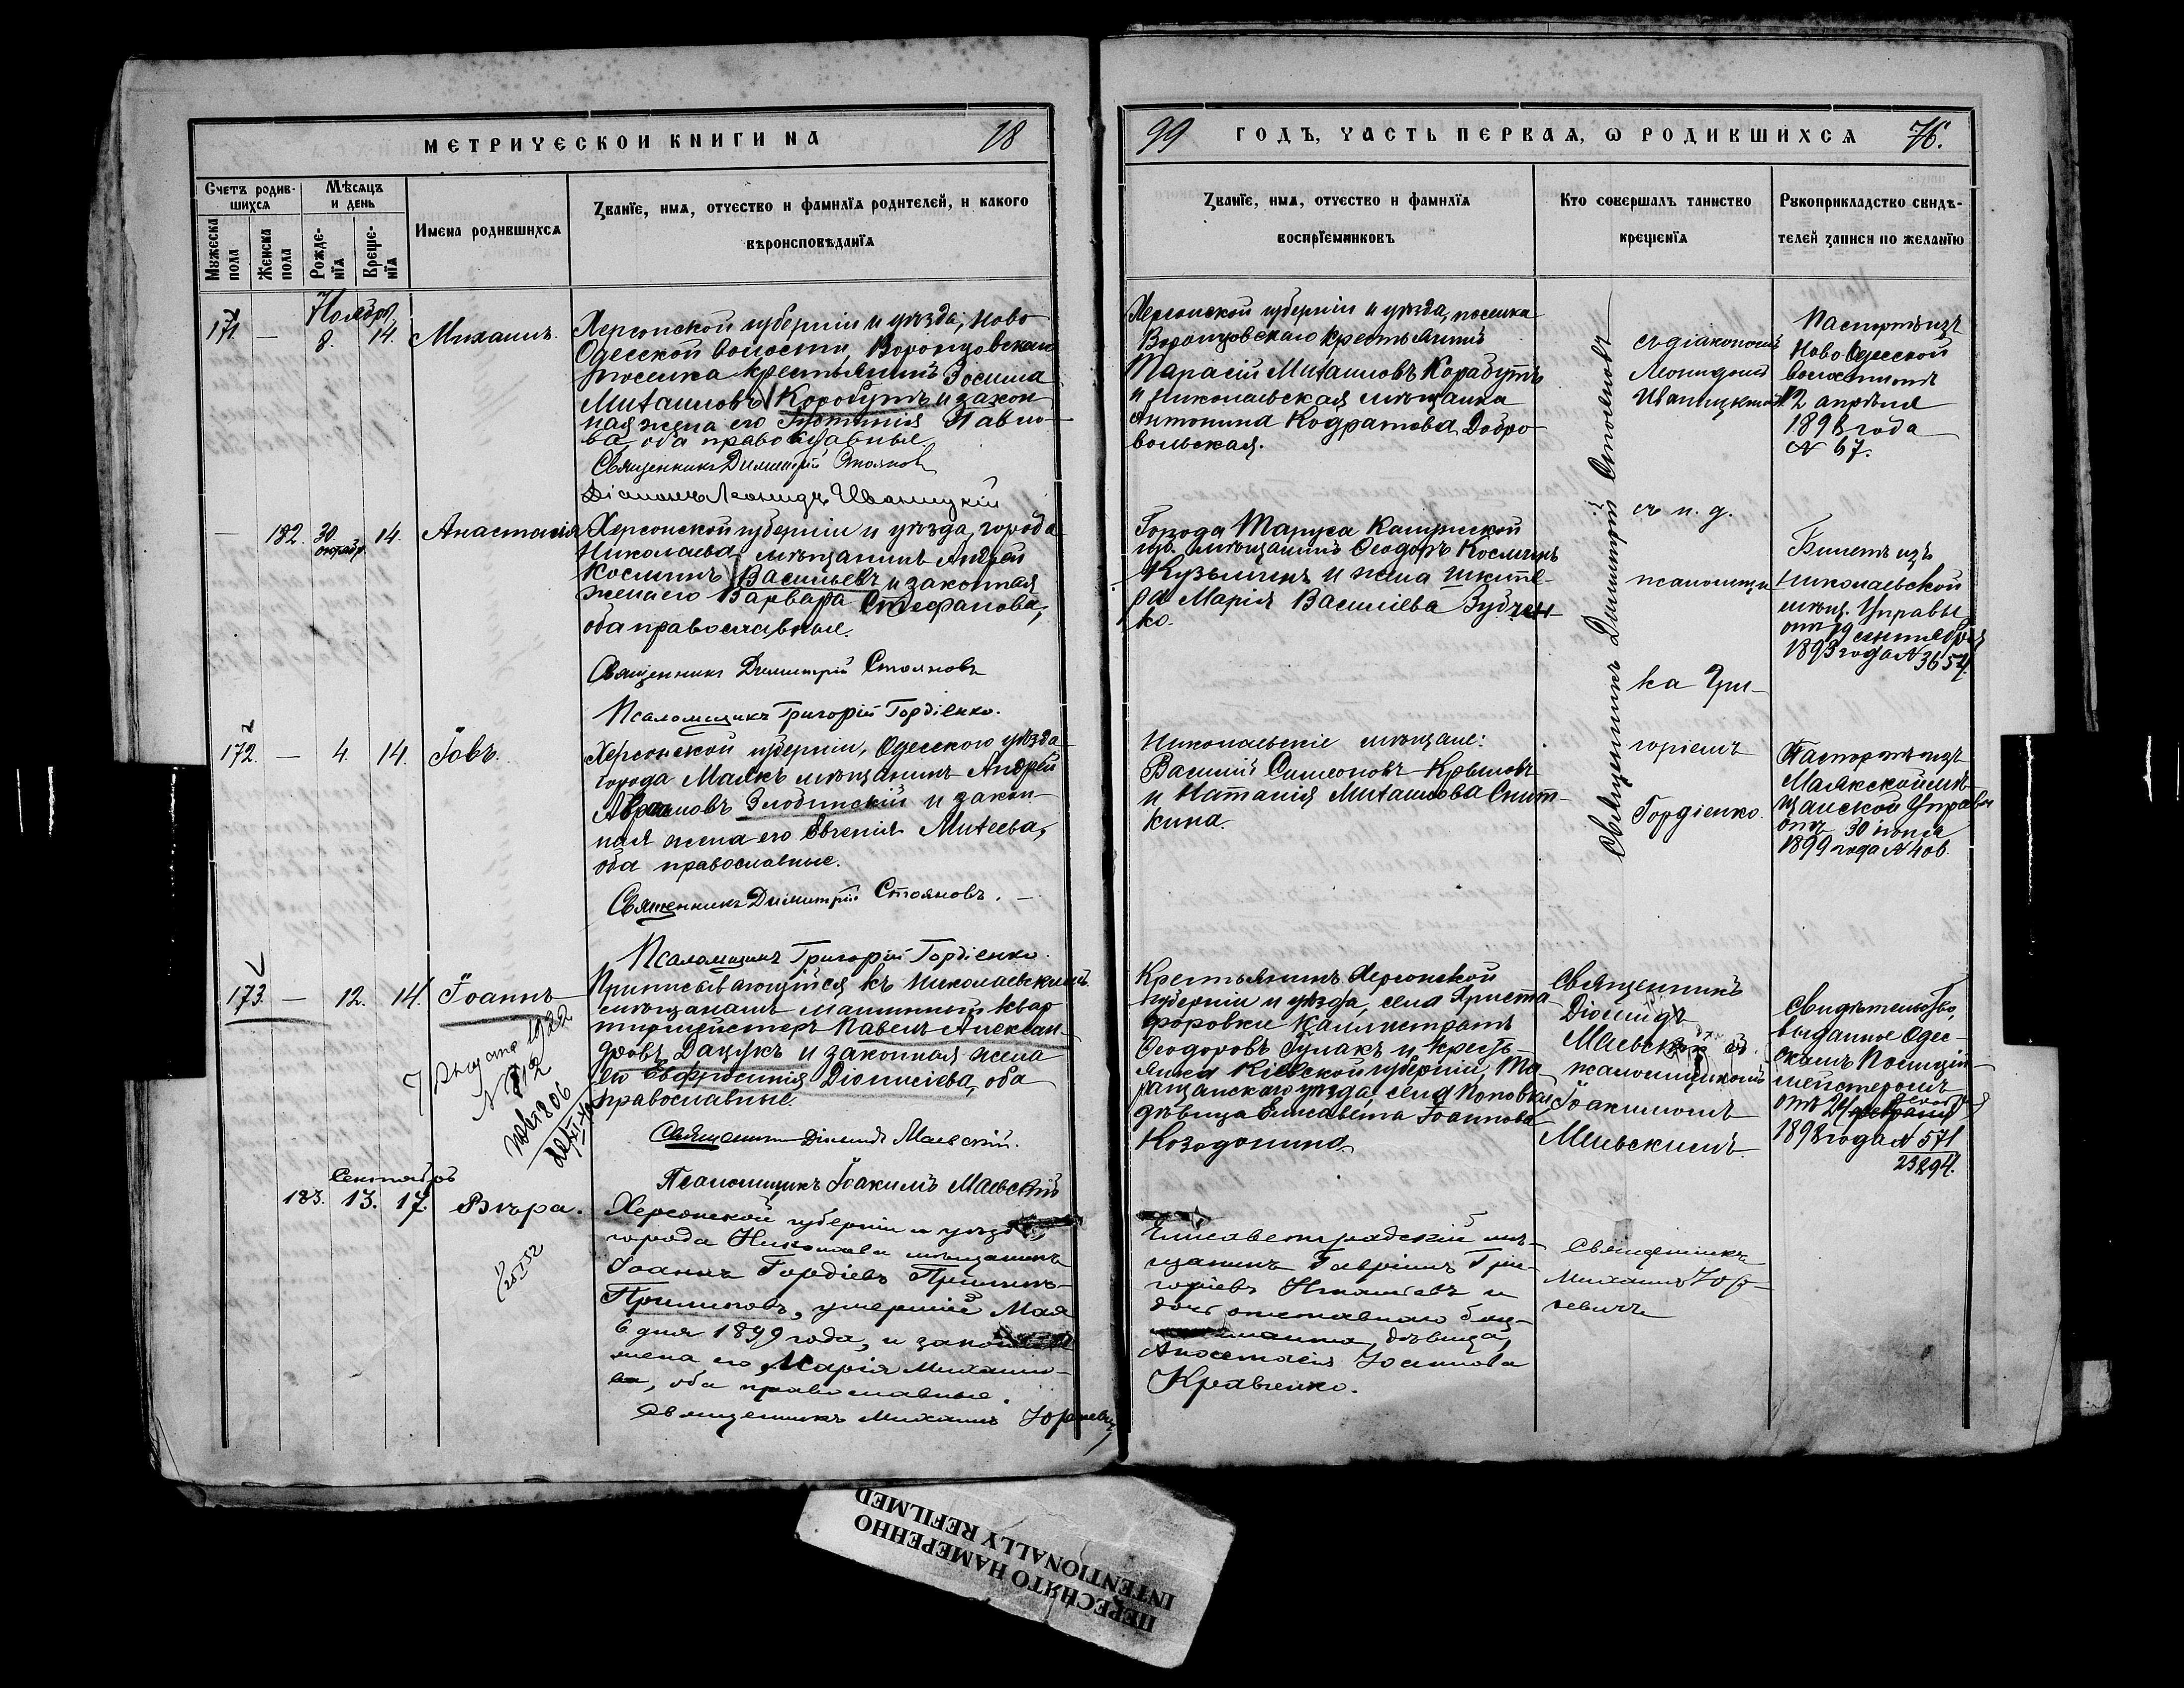 МЕТРИЧЕСКОЙ КНИГИ НА 18
99 ГОДЪ, ЧАСТЬ ПЕРВАЯ, Ѡ РОДИВШИХСЯ 76.
Счетъ родившихся
Мѣсяцъ и день
Мужеска пола
Женска пола
Рожденїя
Крещенїя
Имена родившихся
Званїе, имя, отчество и фамилїя родителей, и какого
вѣроисповѣданїя
Званїе, имя, отчество и фамилїя
воспрїемниковъ
Кто совершалъ таинство
крещенїя
Рукоприкладство свидѣ-
телей записи по желанїю
Ноября
171. — 8. 14. Михаилъ.
Херсонской губерніи и уѣзда, Ново
Одесской волости, Воронцовскаго
поселка крестьянинъ Зосима
Михаиловъ Коробутъ и закон
ная жена его Павло-
ва, оба православные,
Священникъ Димитрій Стояновъ
Діаконъ Леонидъ Иваницкій
Херсонской губерніи и уѣзда, поселка
Воронцовскаго крестьянинъ
Тарасій Михаиловъ Корабутъ
и николаевская мѣщанка
Антонина Кодратова Добро-
вольская.
Священникъ Димитрій Стояновъ
съ діакономъ
Леонидомъ
Иваницкимъ
Паспортъ изъ
Ново Одесской
волости отъ
12 апрѣля
1898 года
N 67.
— 182. 30. октября 14. Анастасія
Херсонской губерніи и уѣзда, города
Николаева мѣщанинъ Андрей
Косминъ Васильевъ и законная
жена его Варвара Стефанова,
оба православные.
Священникъ Димитрій Стояновъ
Псаломщикъ Григорій Гордіенко.
Города Таруса Калужской
губ. мѣщанинъ Ѳеодоръ Косминъ
Кузьминъ и жена шкипе-
ра Марія Василіева Зубчен-
ко.
съ и. д.
псаломщи
ка Гри-
горіемъ
Гордіенко.
Билетъ изъ
Николаевской
мѣщ. Управы
отъ 19 сентября
1893 года N 3654.
172. — 4. 14. Іовъ.
Херсонской губерніи, Одесскаго уѣзда
города Маякъ мѣщанинъ Андрей
Злобинскій и закон-
ная жена его Евгенія Михеева,
оба православные.
Священникъ Димитрій Стояновъ. —
Псаломщикъ Григорій Гордіенко.
Николаевскіе мѣщане:
Василій Симеоновъ Крыловъ
и Наталія Михаилова Снит-
кина.
Паспортъ изъ
Маякской мѣ-
щанской Управы
отъ 30 іюня
1899 года N 406.
173. — 12. 14. Іоаннъ
1922
N 812
Приписывающійся къ николаевскимъ
мѣщанамъ машинный квар
тирмистеръ Павелъ Алексан-
дровъ Дацукъ и законная жена
его Евфросинія Діонисіева, оба
православные.
Священникъ Діомидъ Маевскій.
Псаломщикъ Іоакимъ Маевскій
Крестьянинъ Херсонской
губерніи и уѣзда, села Христа
форовки Калистратъ
Ѳеодоровъ Гулакъ и кресть-
янка Кіевской губерніи, Та
ращанскаго уѣзда, села Поповки
дѣвица Елисавета Іоаннова
Козодопина.
Священникъ
Діомидъ
Маевскій съ
псаломщикомъ
Іоакимомъ
Маевскимъ.
Свидѣтельство,
выданное Одес-
скимъ Полицій-
мейстеромъ
отъ 24
1898 года N 571
23894.
Сентября
183. 13. 17. Вѣра.
Херсонской губерніи и уѣзда
города Николаева мѣщанинъ
Іоаннъ Гордіевъ
умершій Мая
6 дня 1899 года, и законная
жена его Марія Михаило-
ва, оба православные.
Священникъ Михаилъ Юркевичъ
Елисаветградскій мѣ-
щанинъ Гавріилъ Гри-
горіевъ Игнатьевъ и
дочь отставнаго боц-
манмата, дѣвица,
Анастасія Іоаннова
Кравченко.
Священникъ
Михаилъ Юр-
кевичъ
ПЕРЕСНЯТО НАМЕРЕННО
INTENTIONALLY REFILMED